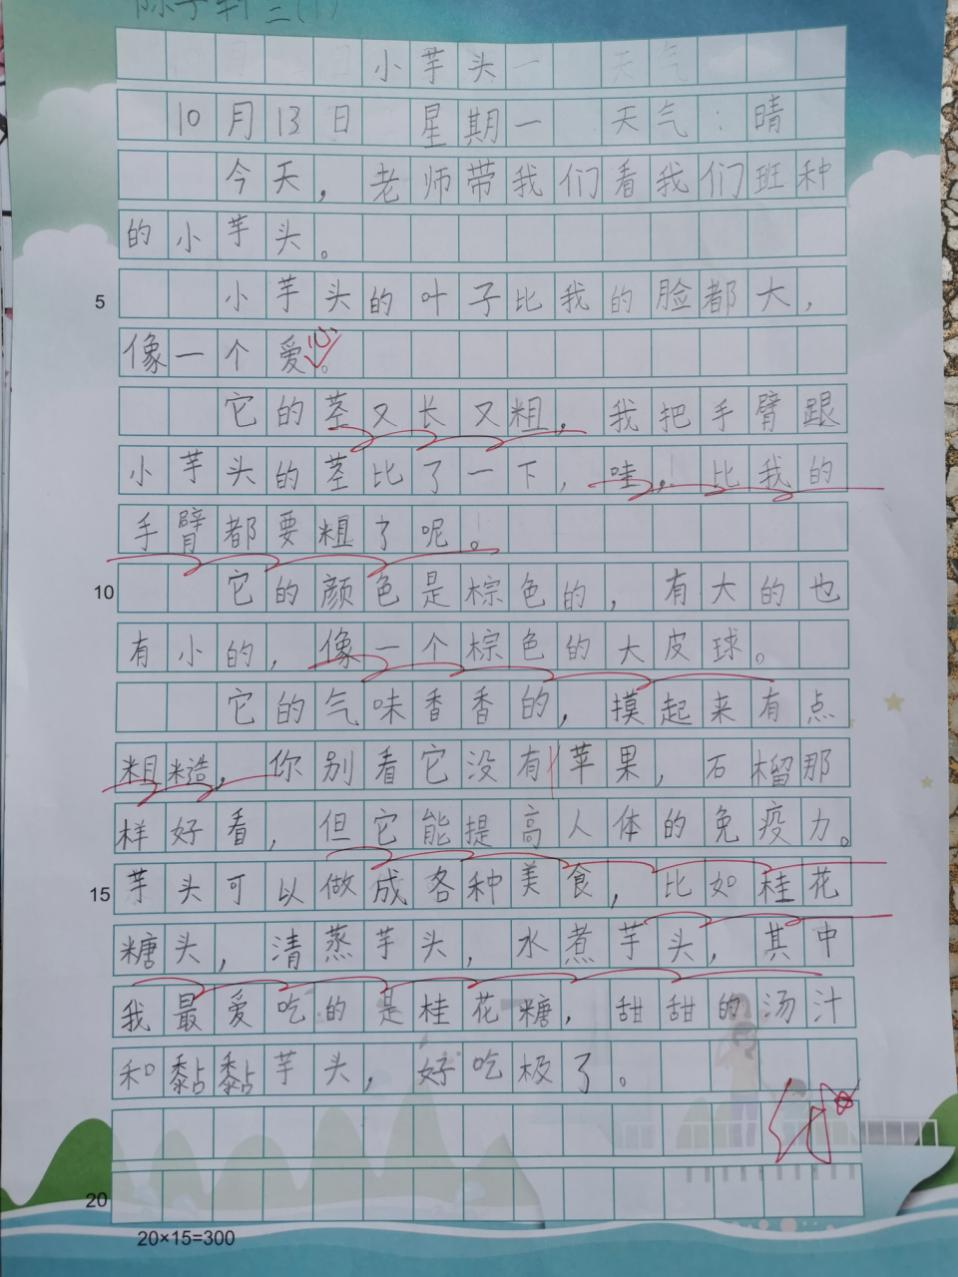 三(1)
小芋头
10月13日 星期一 天气:晴
今天,老师带我们看我们班种
的小芋头。
5 小芋头的叶子比我的脸都大,
像一个爱心。
它的茎又长又粗。我把手臂跟
小芋头的茎比了一下,哇,比我的
手臂都要粗了呢。
10 它的颜色是棕色的,有大的也
有小的,像一个棕色的大皮球。
它的气味香香的,摸起来有点
粗糙,你别看它没有苹果,石榴那
样好看,但它能提高人体的免疫力。
15 芋头可以做成各种美食,比如桂花
糖头,清蒸芋头,水煮芋头,其中
我最爱吃的是桂花糖,甜甜的汤汁
和黏黏芋头,好吃极了。
20
20×15=300